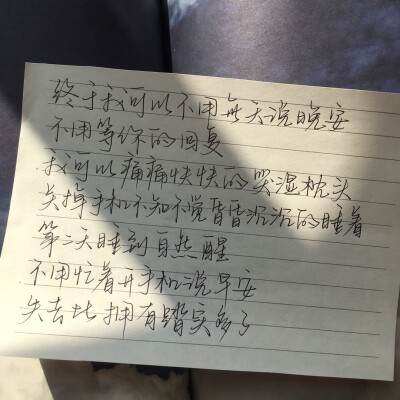 终于我可以不用每天说晚安
不用等你的回复
我可以痛痛快快的哭湿枕头
关掉手机不知不觉昏昏沉沉的睡着
第二天睡到自然醒
不用忙着开手机说早安
失去比拥有踏实多了